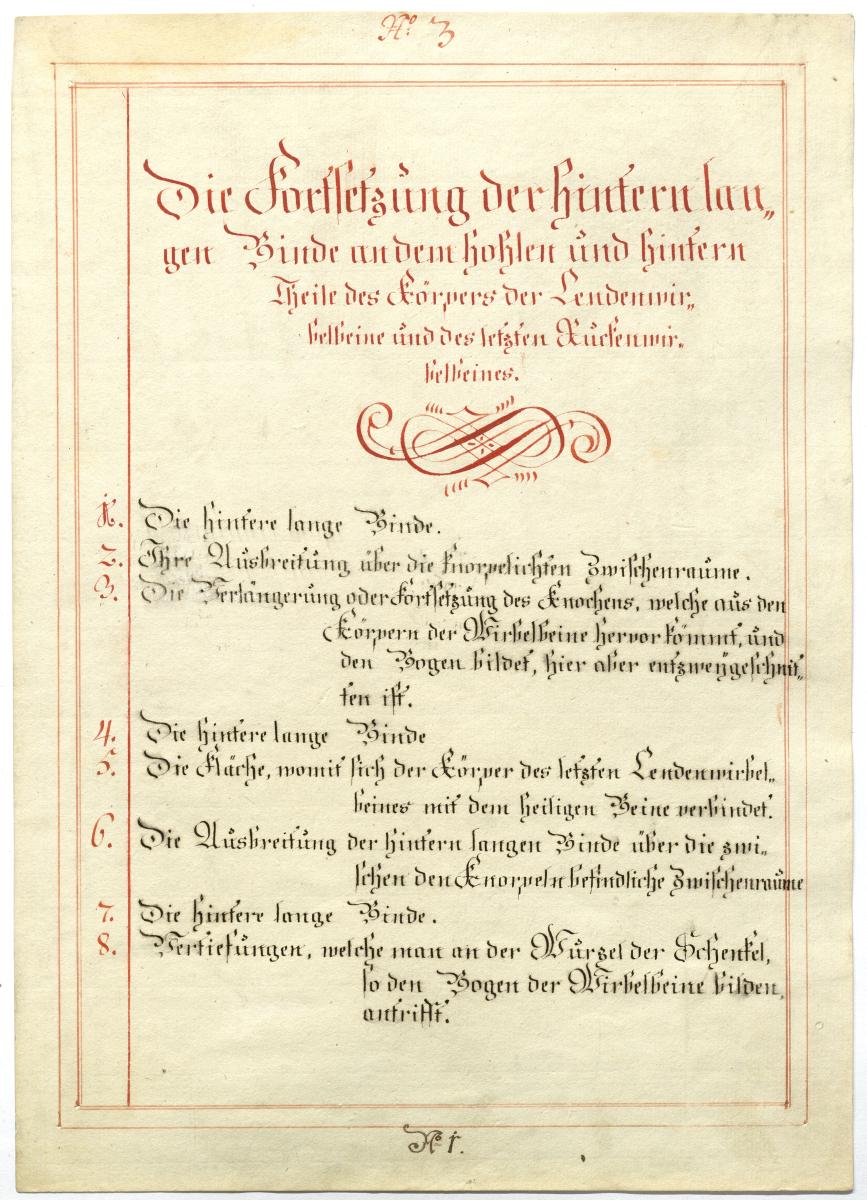 No: 3
Die Fortsetzung der hintern lan„
gen Binde an dem hohlen und hintern
Theile des Körpers der Lendenwir„
belbeine und des letzten Ruckenwir.
belbeines.
1. Die hintere lange Binde.
2. Ihre Ausbreitung über die knorpelichten Zwischenraume.
3. Die Verlängerung oder Fortsetzung des Knochens, welche aus den
Körpern der Wirbelbeine hervor kömmt, und
den Bogen bildet, hier aber entzweÿgeschnit„
ten ist.
4. Die hintere lange Binde
5. Die Fläche, womit sich der Körper des letzten Lendenwirbel„
beines mit dem heiligen Beine verbindet.
6. Die Ausbreitung der hintern langen Binde über die zwi„
schen den Knorpeln befindliche Zwischenraüme
7. Die hintere lange Binde.
8. Vertiefungen, welche man an der Würzel der Schenkel,
so den Bogen der Wirbelbeine bilden,
antrifft.
No 1.